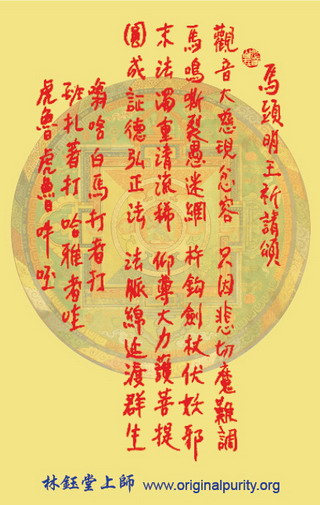 馬頭明王祈請頌
觀音大慈現忿容 只因悲切魔難調
馬鳴嘶裂愚迷網 杵鉤劍杖伏妖邪
末法濁重清流稀 仰尊大力護菩提
圓成証德弘正法 法脈綿延渡群生
嗡哈白馬打者打
扎著打 哈雅者哇
虎魯虎魯吽呸
林鈺堂上師 www.originalpurity.org